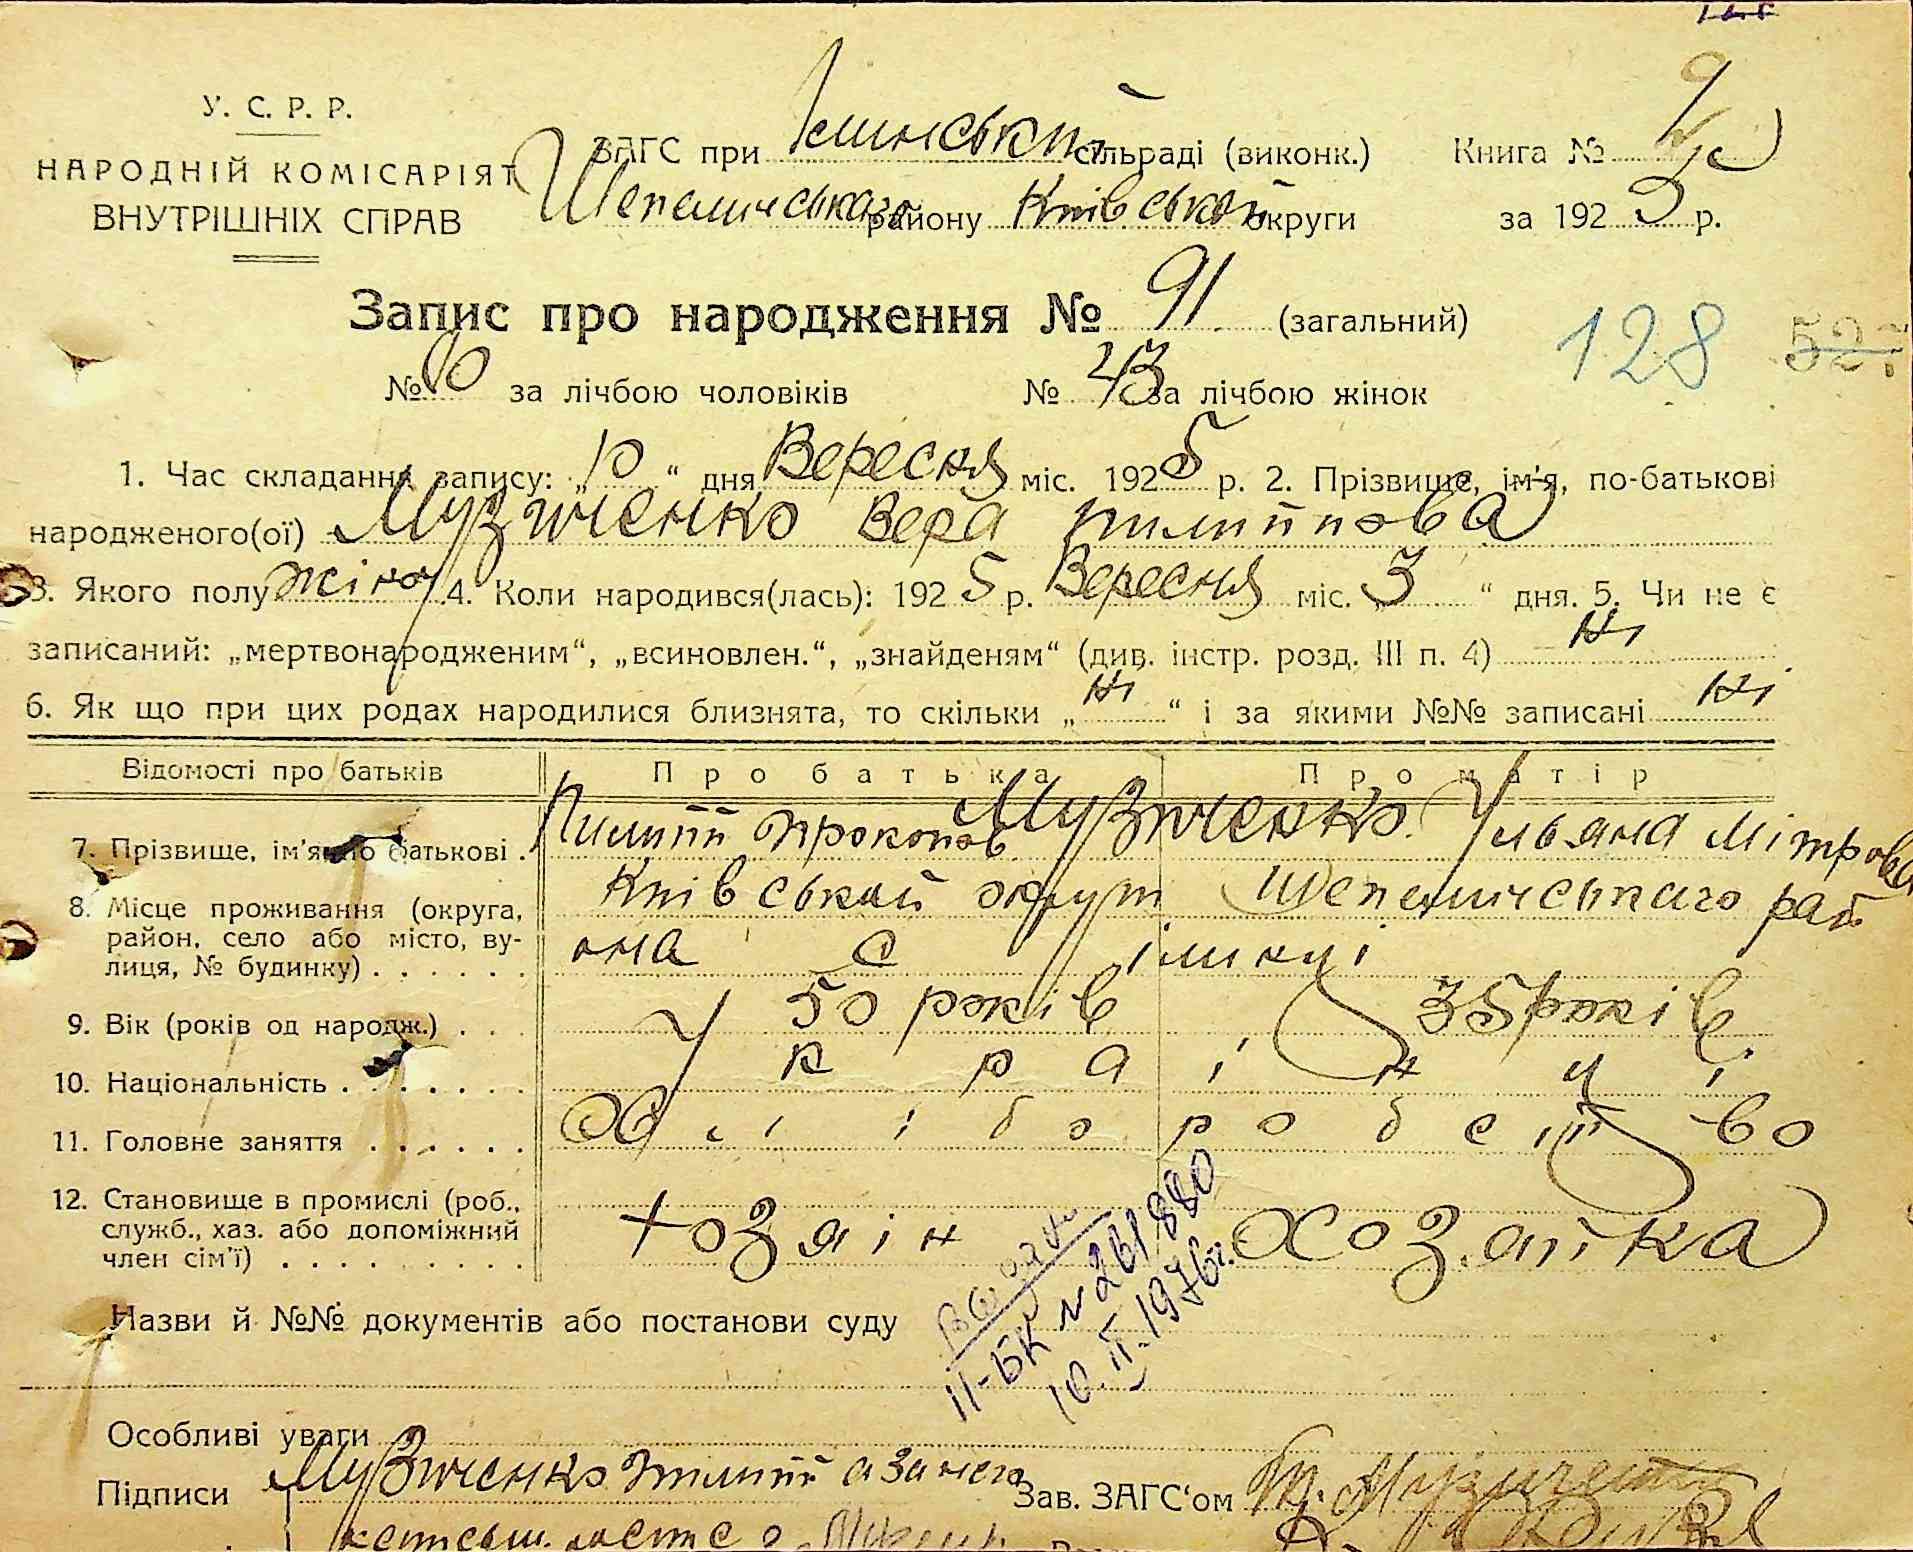 У. С. Р. Р.
НАРОДНІЙ КОМІСАРІЯТ
ВНУТРІШНІХ СПРАВ
ЗАГС при Ілинський сільраді (виконк.) Книга № 2
Шепелицського району Київськой округи за 1925 р.
Запис про народження № 91 (загальний)
128 527
№ за лічбою чоловіків № 43 за лічбою жінок
1. Час складання запису: „10“ дня Вересня міс. 1925 р. 2. Прізвище, ім'я, по-батькові
народженого(ої) Музиченко Вера пилипова
3. Якого полу жіноч 4. Коли народився(лась): 1925 р. Вересня міс. „3“ дня. 5. Чи не є
записаний: „мертвонародженим“, „всиновлен.“, „знайденям“ (див. інстр. розд. III п. 4) Ні
6. Як що при цих родах народилися близнята, то скільки „Ні“ і за якими №№ записані Ні
Відомості про батьків Про батька Про матір
7. Прізвище, ім'я, по батькові . Пилип прокопов Музиченко Ульяна Мітрова
8. Місце проживання (округа, Київськой округи Шепелицського рай
район, село або місто, ву- она с ілинці
лиця, № будинку) . . . . . .
9. Вік (років од народж.) . . . 50 років 35 років
10. Національність . . . . . . . Українці
11. Головне заняття . . . . . . Хліборобство
12. Становище в промислі (роб.,
служб., хаз. або допоміжний хозяін хозяйка
член сім'ї) . . . . . . . . .
Назви й №№ документів або постанови суду
II-БК № 261880
10.II.1976г.
Особливі уваги
Підписи Музиченко Пилип а за него Зав. ЗАГС'ом